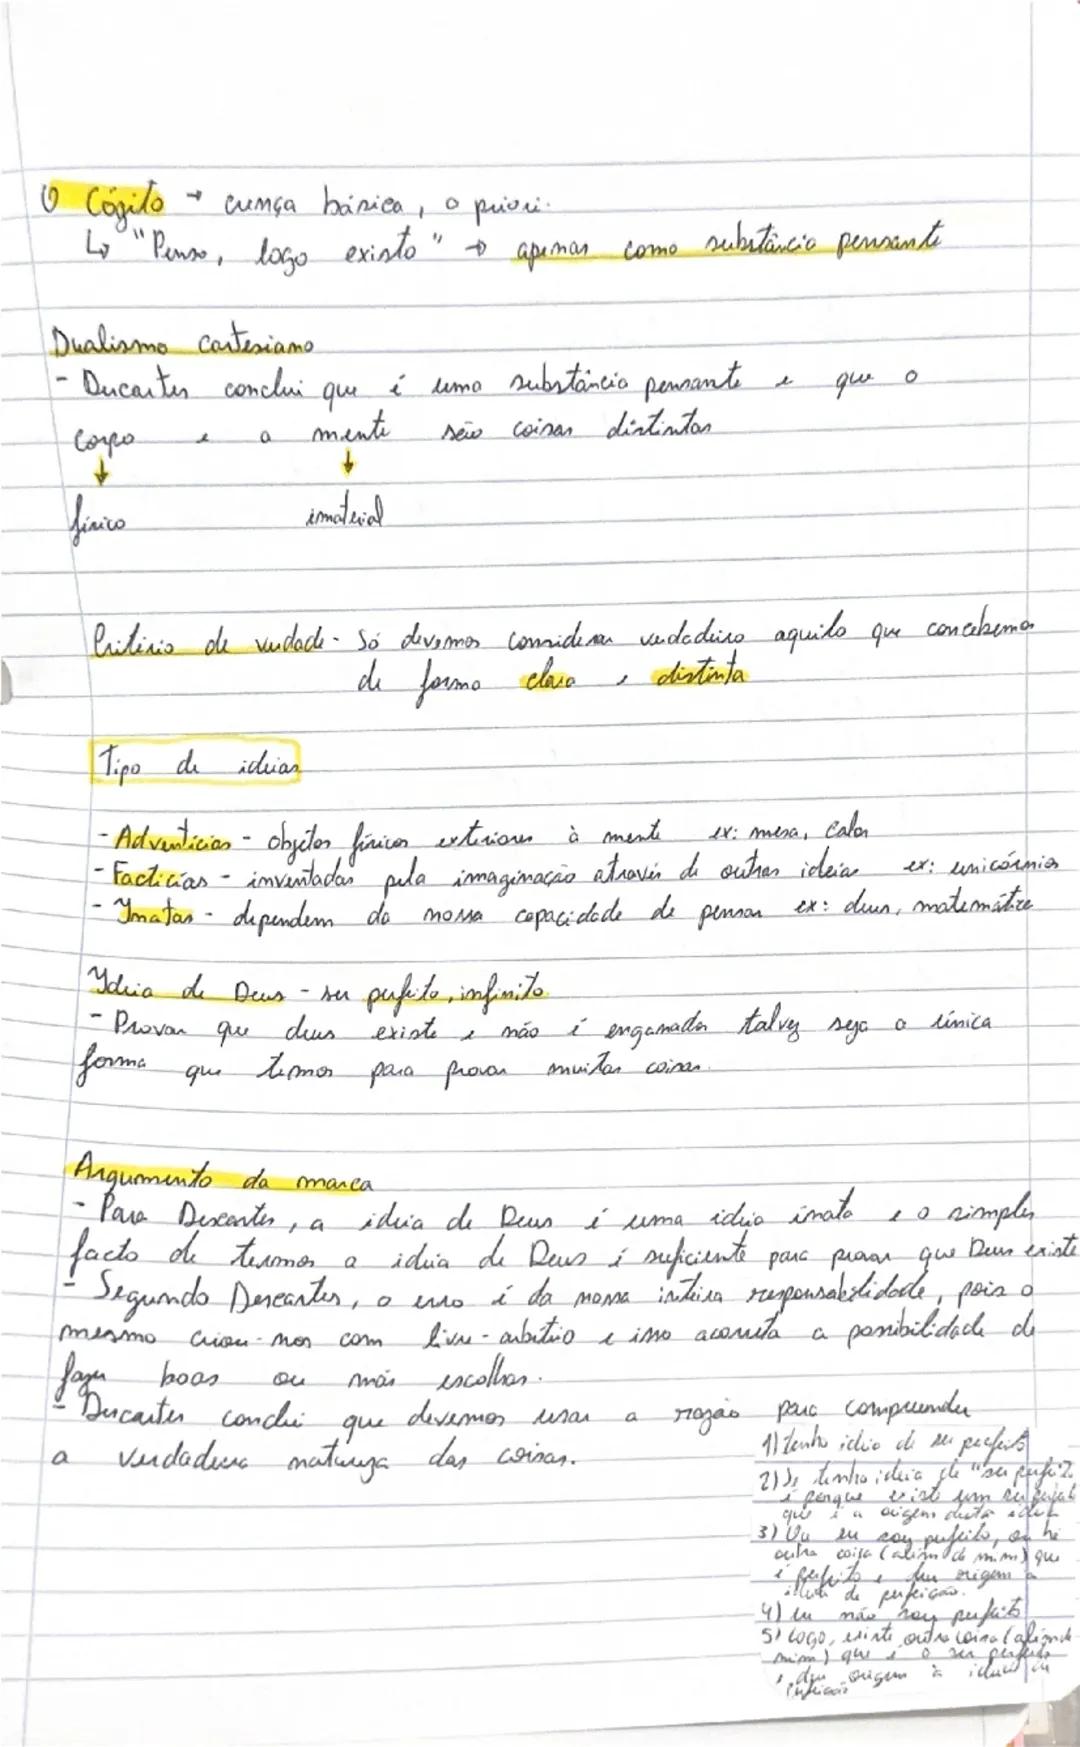 O Cógito → crença básica, a priori.
↳ "Penso, logo existo" → apenas como substância pensante
Dualismo cartesiano
- Descartes conclui que é uma substância pensante e que o
corpo e a mente são coisas distintas
↓ ↓
físico imaterial
Critério de verdade - Só devemos considerar verdadeiro aquilo que concebemos
de forma clara e distinta
Tipo de ideias
- Adventícias - objetos físicos exteriores à mente ex: mesa, calor
- Factícias - inventadas pela imaginação através de outras ideias ex: unicórnios
- Inatas - dependem da nossa capacidade de pensar ex: deus, matemática
Ideia de Deus - ser perfeito, infinito
- Provar que deus existe e não é enganador talvez seja a única
forma que temos para provar muitas coisas.
Argumento da marca
- Para Descartes, a ideia de Deus é uma ideia inata e o simples
facto de termos a ideia de Deus é suficiente para provar que Deus existe
- Segundo Descartes, o erro é da nossa inteira responsabilidade, pois o
mesmo criou-nos com livre-arbítrio e isso acarreta a possibilidade de
fazer boas ou más escolhas.
- Descartes conclui que devemos usar a razão para compreender
a verdadeira natureza das coisas.
1) tenho ideia de ser perfeito
2) Se tenho ideia de "ser perfeito"
é porque existe um ser perfeito
que é a origem desta ideia
3) Ou eu sou perfeito, ou há
outra coisa (além de mim) que
é perfeito e deu origem a
ideia de perfeição.
4) eu não sou perfeito
5) Logo, existe outra coisa (além de
mim) que é o ser perfeito
e deu origem à ideia de
perfeição